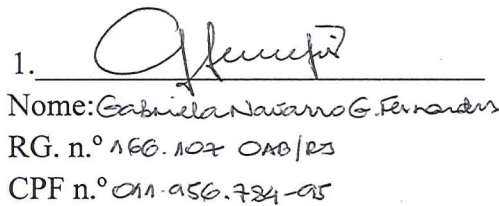 1.
Nome: Gabriela Navarro G. Fernandes
RG. n.º 166.107 OAB/RJ
CPF n.º 011.956.784-95